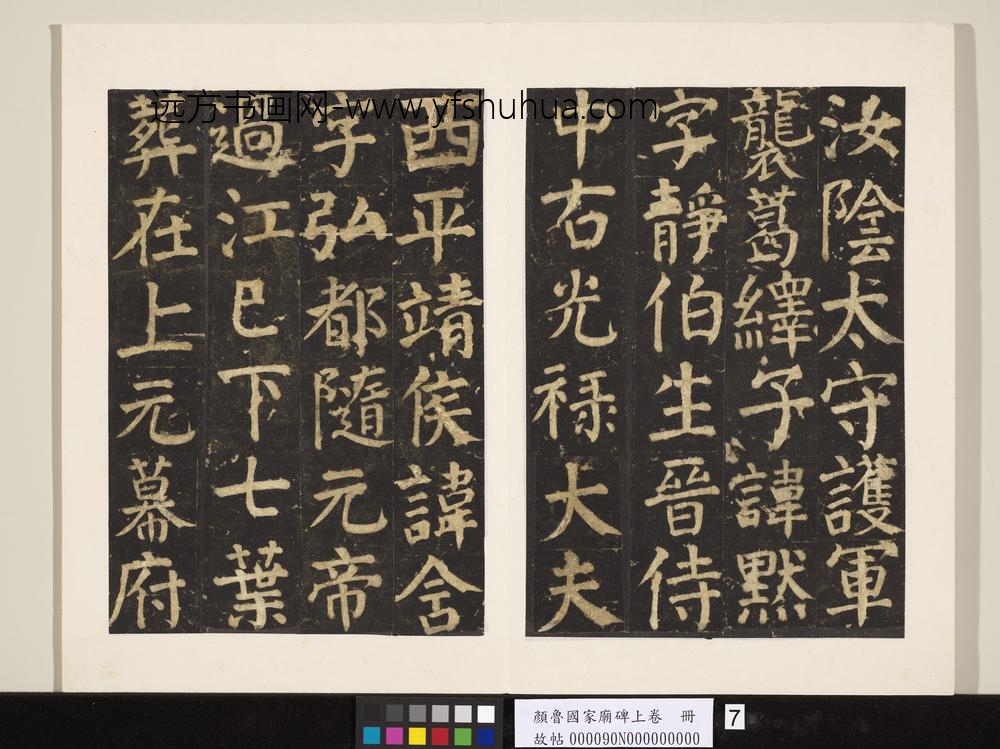 远方书画网-www.yfshuhua.com
汝陰太守護軍
襲葛繹子諱默
字靜伯生晉侍
中右光祿大夫
西平靖侯諱含
字弘都隨元帝
過江已下七葉
葬在上元幕府
顏魯國家廟碑上卷 冊
故帖 000090N000000000
7